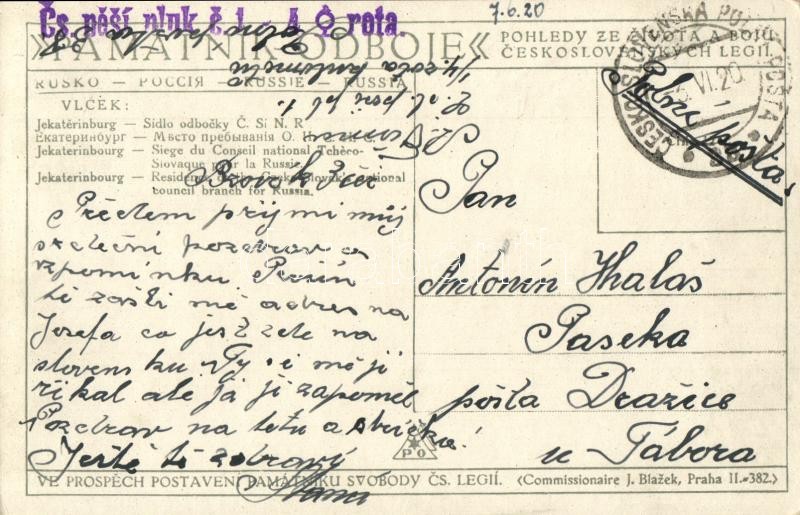 Čs. pěší pluk č. 1 - 4. Q rota.
7.6.20
»PAMÁTNÍK ODBOJE«
POHLEDY ZE ŽIVOTA A BOJŮ
ČESKOSLOVENSKÝCH LEGIÍ.
RUSKO — РОССІЯ — RUSSIE — RUSSIA
VLČEK:
Jekatěrinburg — Sídlo odbočky Č. S. N. R.
Екатеринбург — Мѣсто пребыванія О.
Jekaterinbourg — Siege du Conseil national Tchèco-
Slovaque pour la Russie.
Jekaterinbourg — Residence of the Czecho-Slovak's national
council branch for Russia.
ČESKOSLOVENSKÁ POLNÍ POŠTA
VI. 20
Polní pošta
Předem přijmi můj
srdeční pozdrav a
vzpomínku Prosím
tě zašli mě adres na
Josefa co jest zde na
slovensku Ty si mě ji
řikal ale já ji zapoměl
Pozdrav na tetu a strýčka!
Ještě tě zdravý
Pan
Antonín Ihalaš
Paseka
pošta Dražice
u Tábora
PO
VE PROSPĚCH POSTAVENÍ PAMÁTNÍKU SVOBODY ČS. LEGIÍ. (Commissionaire J. Blažek, Praha II.-382.)